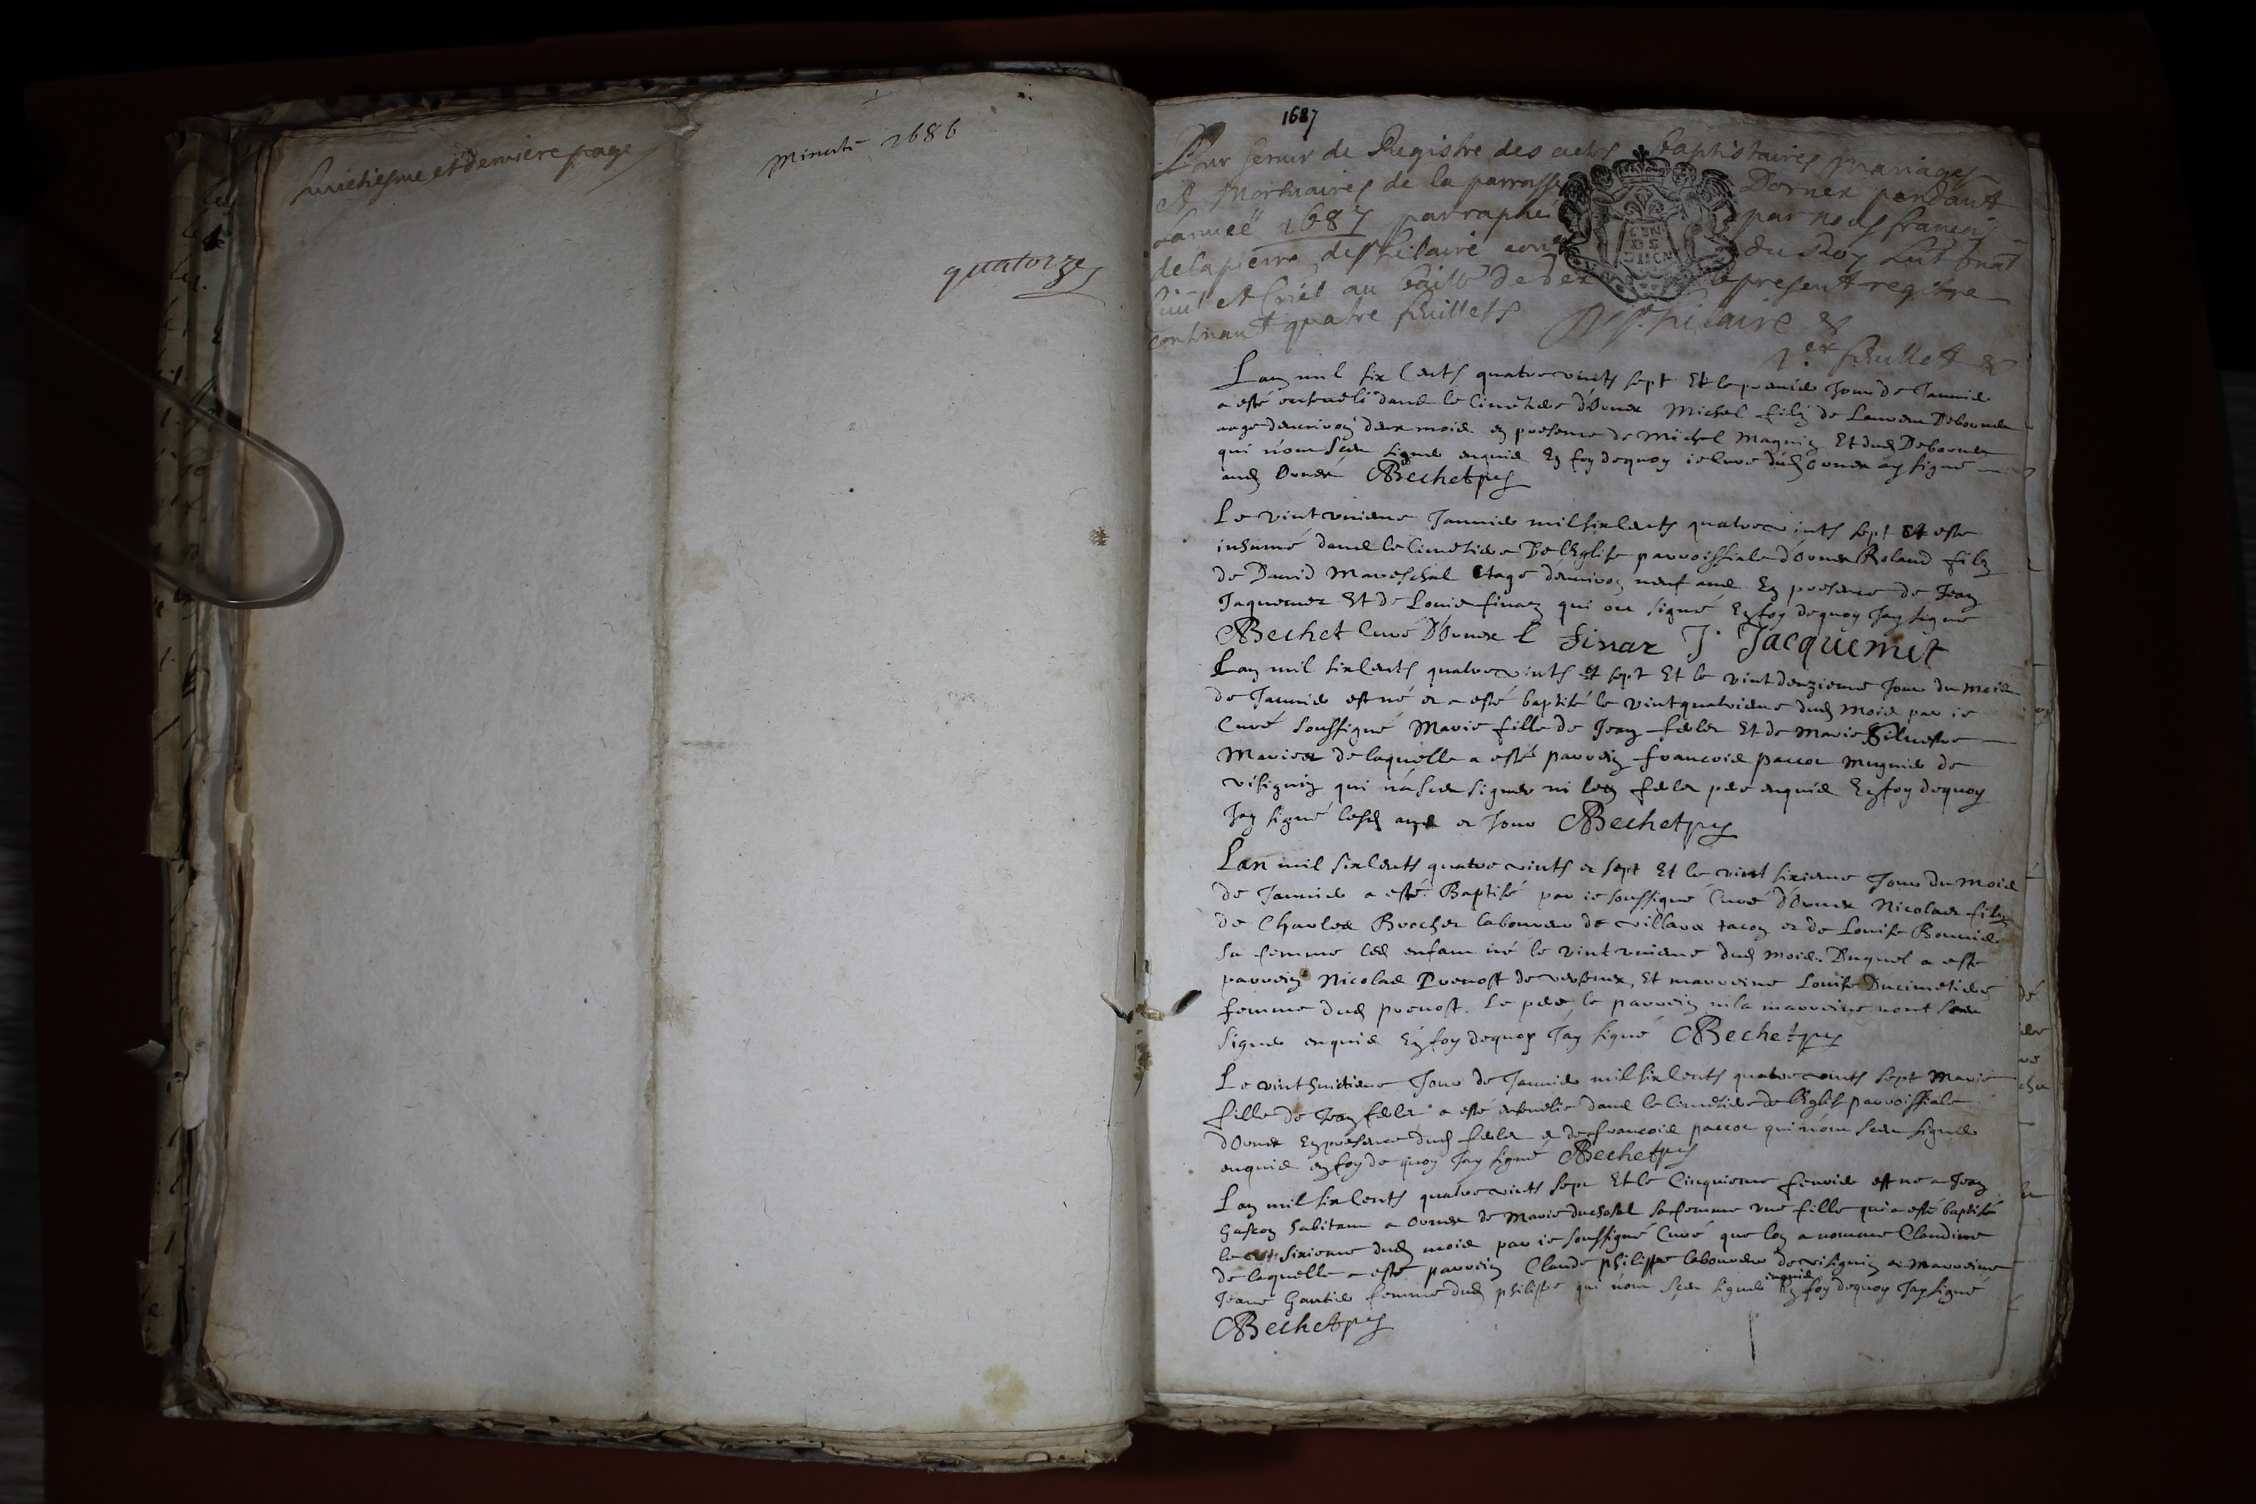 huictiesme et derniere page
Minutte 1686
quatorze
1687
Pour servir de Registre des actes baptistaires mariages
Et Mortuaires de la parroisse Dornex pendant
Lannee 1687 parraphé par nous francois
delapierre de st hilaire du Roy Lieut
et au de Gex le present registre
contenant quatre feuillets De st. hilaire
1.er feuillet
GEN DE DIION
Lan mil six cents quatrevints sept Et le premier Jour de Janvier
a esté enseveli dans le Cimetiere d'Ornex Michel filz de Laurent Debornex
aage denviron deux mois en presence de Michel Magnin Et dud Debornex
qui n'ont sceu signer enquis En foy dequoy ie Curé dud Ornex ay signé
aud Ornex Bechet
Le vint uniesme Janvier mil six cents quatrevints sept a esté
inhumé dans le Cimetiere De l'Eglise parroissiale d'Ornex Roland filz
de David Mareschal aagé denviron neuf ans En presence de Jean
Jaquemet Et de Louis finaz qui ont signé En foy dequoy Jay signé
Bechet Curé D'Ornex L finaz J. Jacquemet
Lan mil six cents quatrevints et sept Et le vint deuzieme Jour du mois
de Janvier est né et a esté baptisé le vintquatrieme dud mois par ie
Curé soussigné Marie fille de Jean feler Et de Marie Silvestre
Mariez de laquelle a esté parrein francois paccot Mugnier de
visignin qui n'a sceu signer ni led feler pere enquis En foy dequoy
Jay signé lesd an et Jour Bechet
Lan mil six cents quatre vints et sept Et le vint sixieme Jour du mois
de Janvier a esté Baptisé par ie soussigné Curé d'Ornex Nicolas filz
de Charles Brochet laboureur de villars tacon et de Louise Bonnier
sa femme led enfant né le vint unieme dud mois. Duquel a esté
parrein Nicolas Prevost de versonex, Et marreine Louise Ducimetiere
femme dud prevost. Le pere, le parrein ni la marreine n'ont sceu
signer enquis En foy dequoy Jay signé Bechet
Le vint huitieme Jour de Janvier mil six cents quatrevints sept Marie
fille de Jean feler a esté ensevelie dans le Cimetiere de l'Eglise parroissiale
d'Ornex En presence dud feler et de francois paccot qui n'ont sceu signer
enquis en foy de quoy Jay signé Bechet
Lan mil six cents quatrevints sept Et le Cinquieme fevrier est né a Jean
Gascon habitant a Ornex de Marie duchosal sa femme une fille qui a esté baptisé
le sixieme dud mois par ie soussigné Curé que lon a nommé Claudine
de laquelle a esté parrein Claude philippe laboureur de visignin et marreine
Jeanne Gautier femme dud philippe qui n'ont sceu signer enquis En foy dequoy Jay signé
Bechet